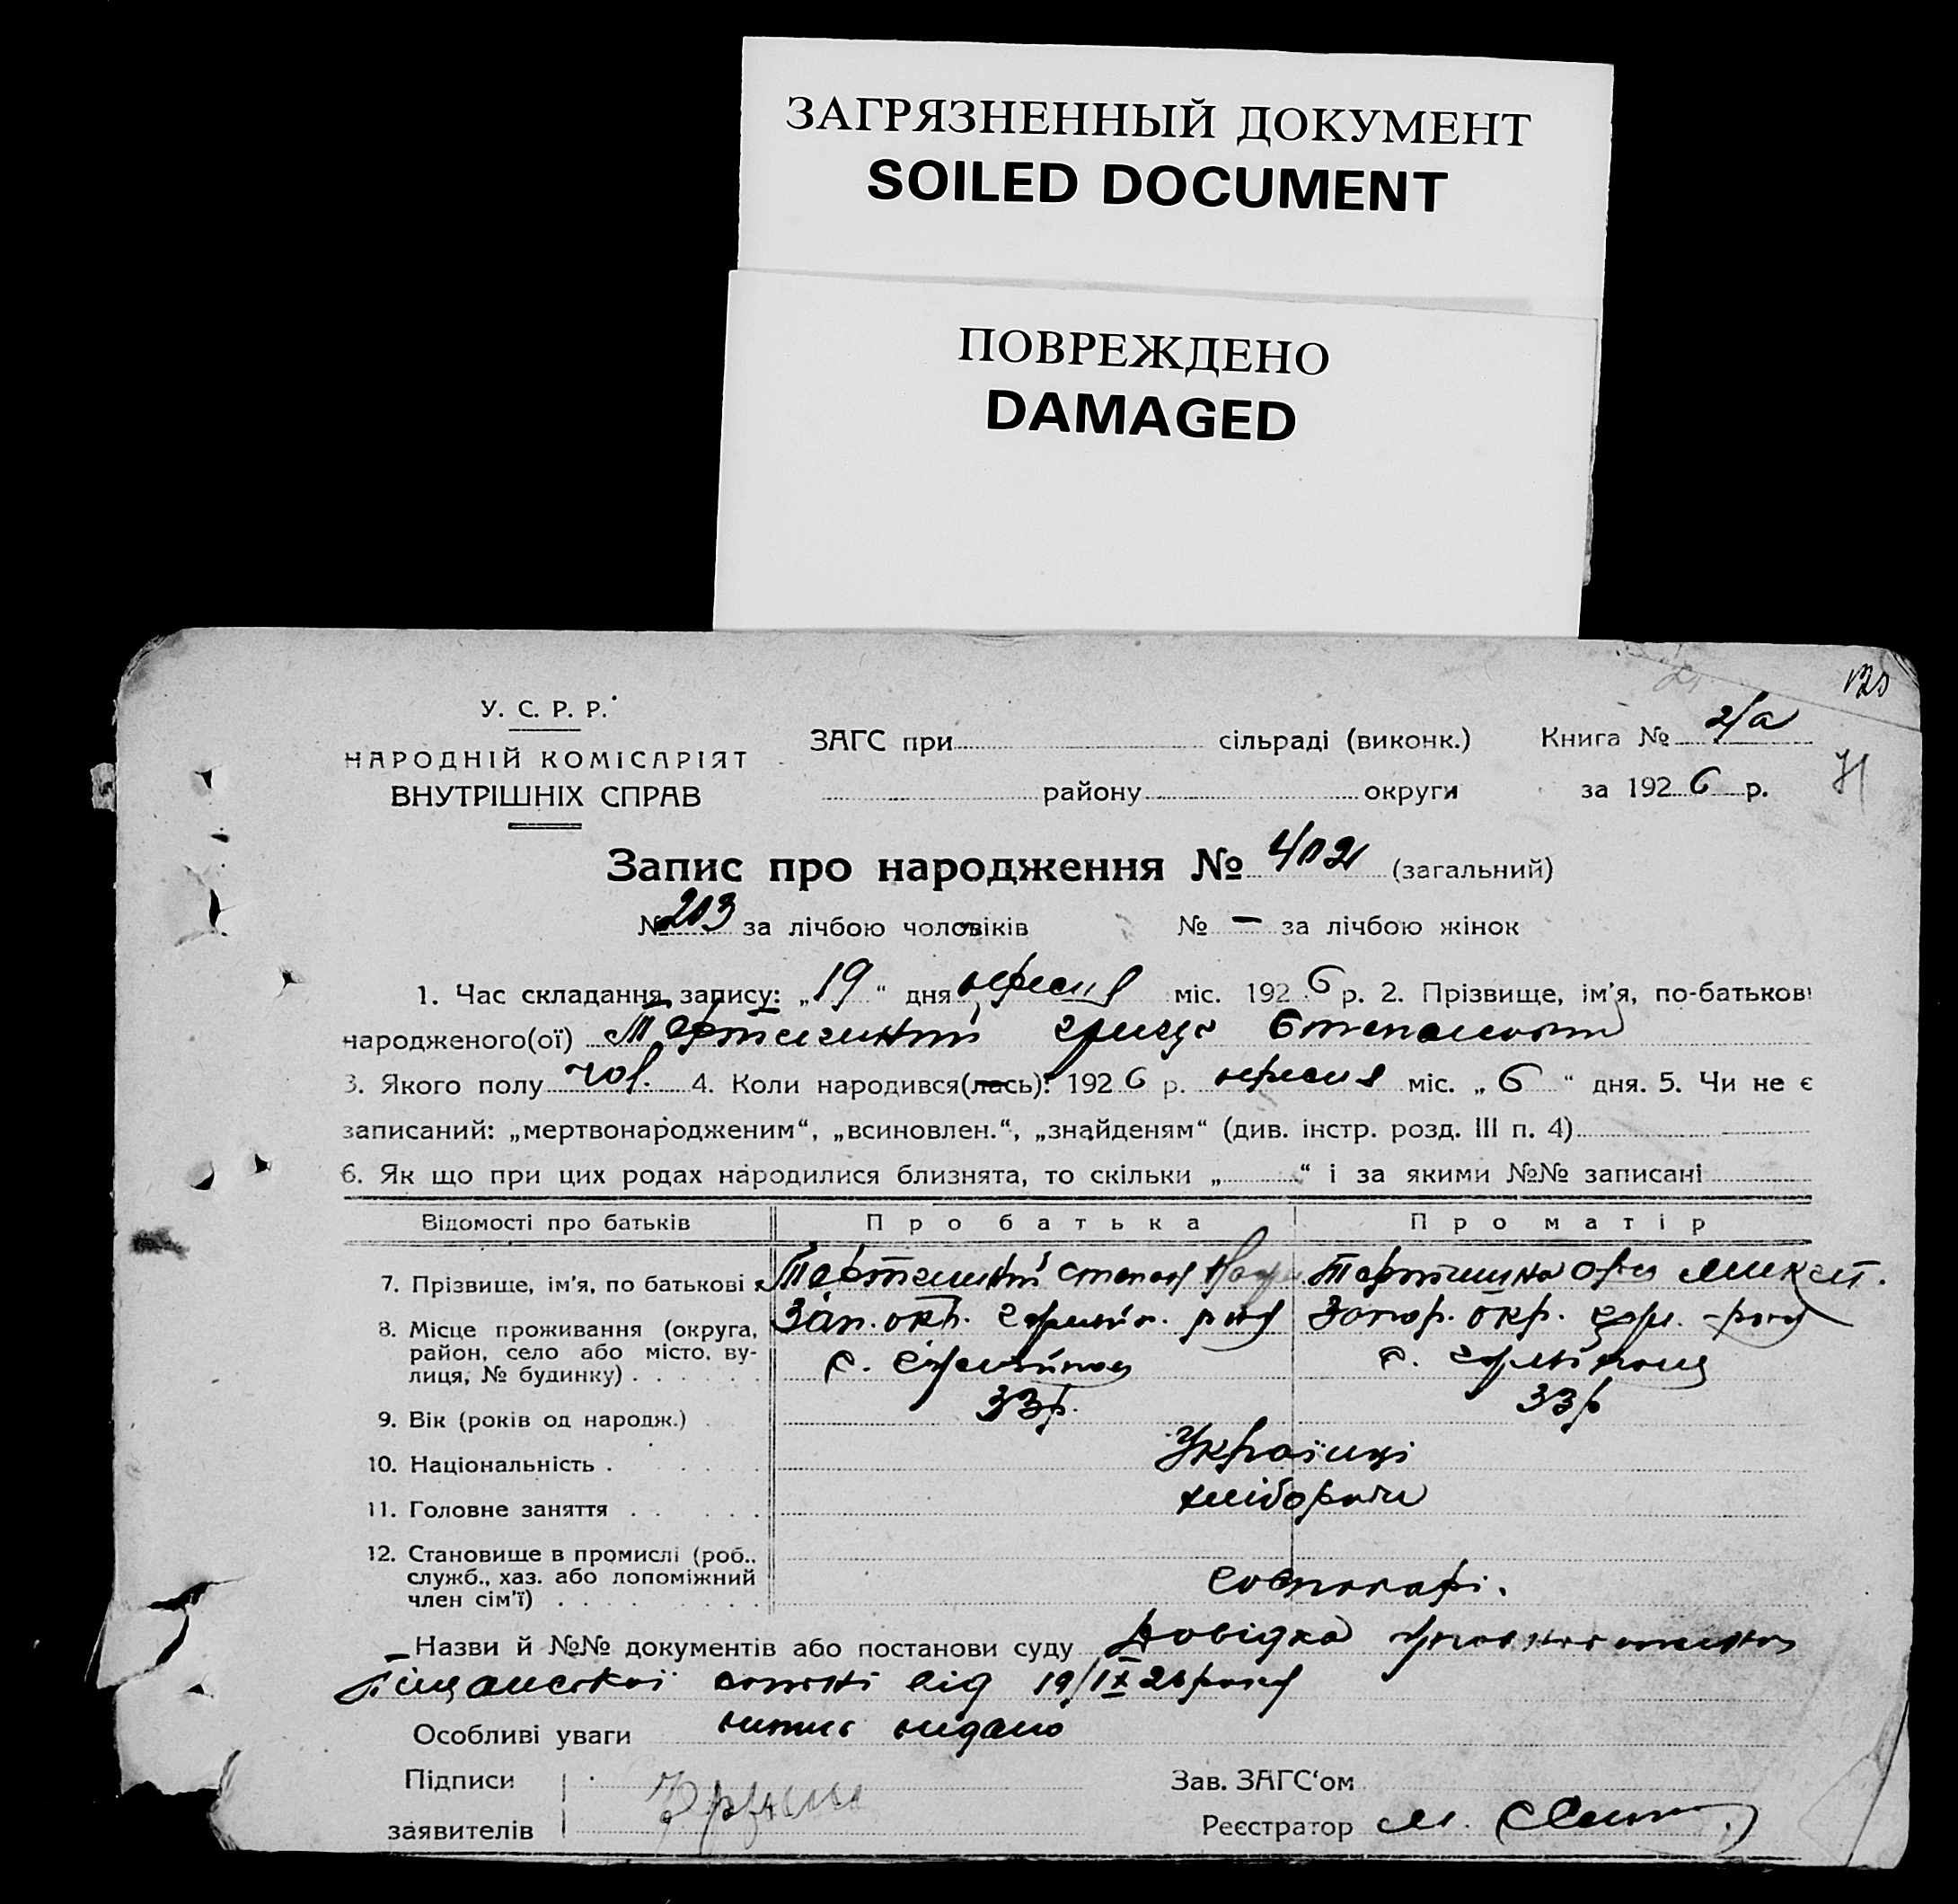 ЗАГРЯЗНЕННЫЙ ДОКУМЕНТ
SOILED DOCUMENT
ПОВРЕЖДЕНО
DAMAGED
У. С. Р. Р.
НАРОДНІЙ КОМІСАРІЯТ
ВНУТРІШНІХ СПРАВ
ЗАГС при сільраді (виконк.)
району округи
Книга № 2/а
за 1926 р.
Запис про народження № 402 (загальний)
№ 203 за лічбою чоловіків № — за лічбою жінок
1. Час складання запису: „19“ дня вересня міс. 1926 р. 2. Прізвище, ім'я, по-батькові
народженого(ої) Степанович
3. Якого полу чол. 4. Коли народився(лась): 1926 р. вересня міс. „6“ дня. 5. Чи не є
записаний: „мертвонародженим“, „всиновлен.“, „знайденям“ (див. інстр. розд. III п. 4)
6. Як що при цих родах народилися близнята, то скільки „ “ і за якими №№ записані
Відомості про батьків Про батька Про матір
7. Прізвище, ім'я, по батькові Степан
8. Місце проживання (округа, Зап. окр. Запор. окр.
район, село або місто, ву- с. с.
лиця, № будинку)
9. Вік (років од народж.) 33 р. 33 р
10. Національність Українці
11. Головне заняття хлібороби
12. Становище в промислі (роб.,
служб., хаз. або допоміжний
член сім'ї) господарі.
Назви й №№ документів або постанови суду Довідка
від 19/IX 26 року
Особливі уваги витяг видано
Підписи
заявителів
Зав. ЗАГС'ом
Реєстратор